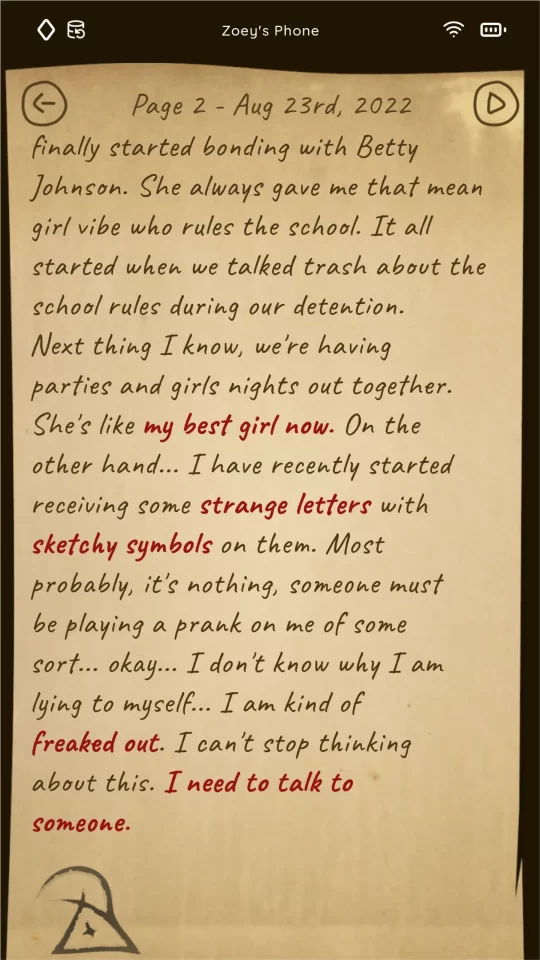 Zoey's Phone
Page 2 - Aug 23rd, 2022
finally started bonding with Betty
Johnson. She always gave me that mean
girl vibe who rules the school. It all
started when we talked trash about the
school rules during our detention.
Next thing I know, we're having
parties and girls nights out together.
She's like my best girl now. On the
other hand... I have recently started
receiving some strange letters with
sketchy symbols on them. Most
probably, it's nothing, someone must
be playing a prank on me of some
sort... okay... I don't know why I am
lying to myself... I am kind of
freaked out. I can't stop thinking
about this. I need to talk to
someone.